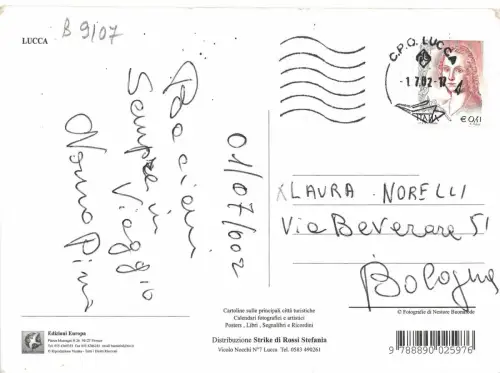 B 9/07
LUCCA
C.P.O. LUCCA
-1.7.02-17
ITALIA
€ 0,41
01/07/002
Bacioni
Sempre in
Viaggio
Nonno Pina
X LAURA NORELLI
Via Beverara 51
Bologna
© Fotografie di Nestore Buonafede
Cartoline sulle principali città turistiche
Calendari fotografici e artistici
Posters , Libri , Segnalibri e Ricordini
Distribuzione Strike di Rossi Stefania
Vicolo Nocchi N°7 Lucca Tel. 0583 490261
Edizioni Europa
9 788890 025976